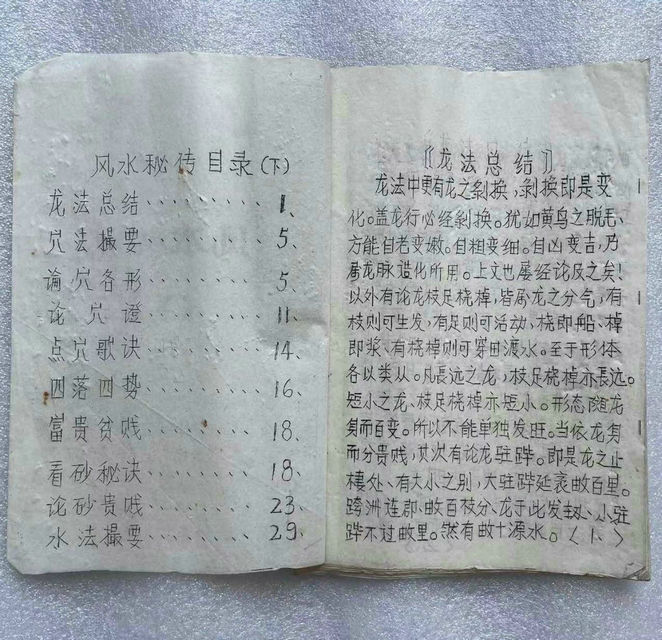 风水秘传目录(下)
龙法总结········1、
穴法撮要········5、
论穴各形········5、
论穴證········11、
点穴歌诀········14、
四落四势········16、
富贵贫贱········18、
看砂秘诀········18、
论砂贵贱········23、
水法撮要········29、
《龙法总结》
龙法中更有龙之剝换,剝换即是变
化。盖龙行必经剝换。犹如黄鸟之脱毛、
方能自老变嫩。自粗变细。自凶变吉,乃
属龙脉造化所用。上文也屡经论及之矣!
以外有论龙枝足桡棹,皆属龙之分气,有
枝则可生发,有足则可活动、桡即船、棹
即桨、有桡棹则可穿田渡水。至于形体
各以类从。凡長远之龙,枝足桡棹亦長远。
短小之龙、枝足桡棹亦短小。形态随龙
身而百变。所以不能单独发旺。当依龙身
而分贵贱,其次有论龙驻跸。即是龙之止
棲处、有大小之别,大驻跸延袤数百里。
跨洲连郡、数百枝分、龙于此发、小驻
跸不过数里。然有数十源水。〈1、〉